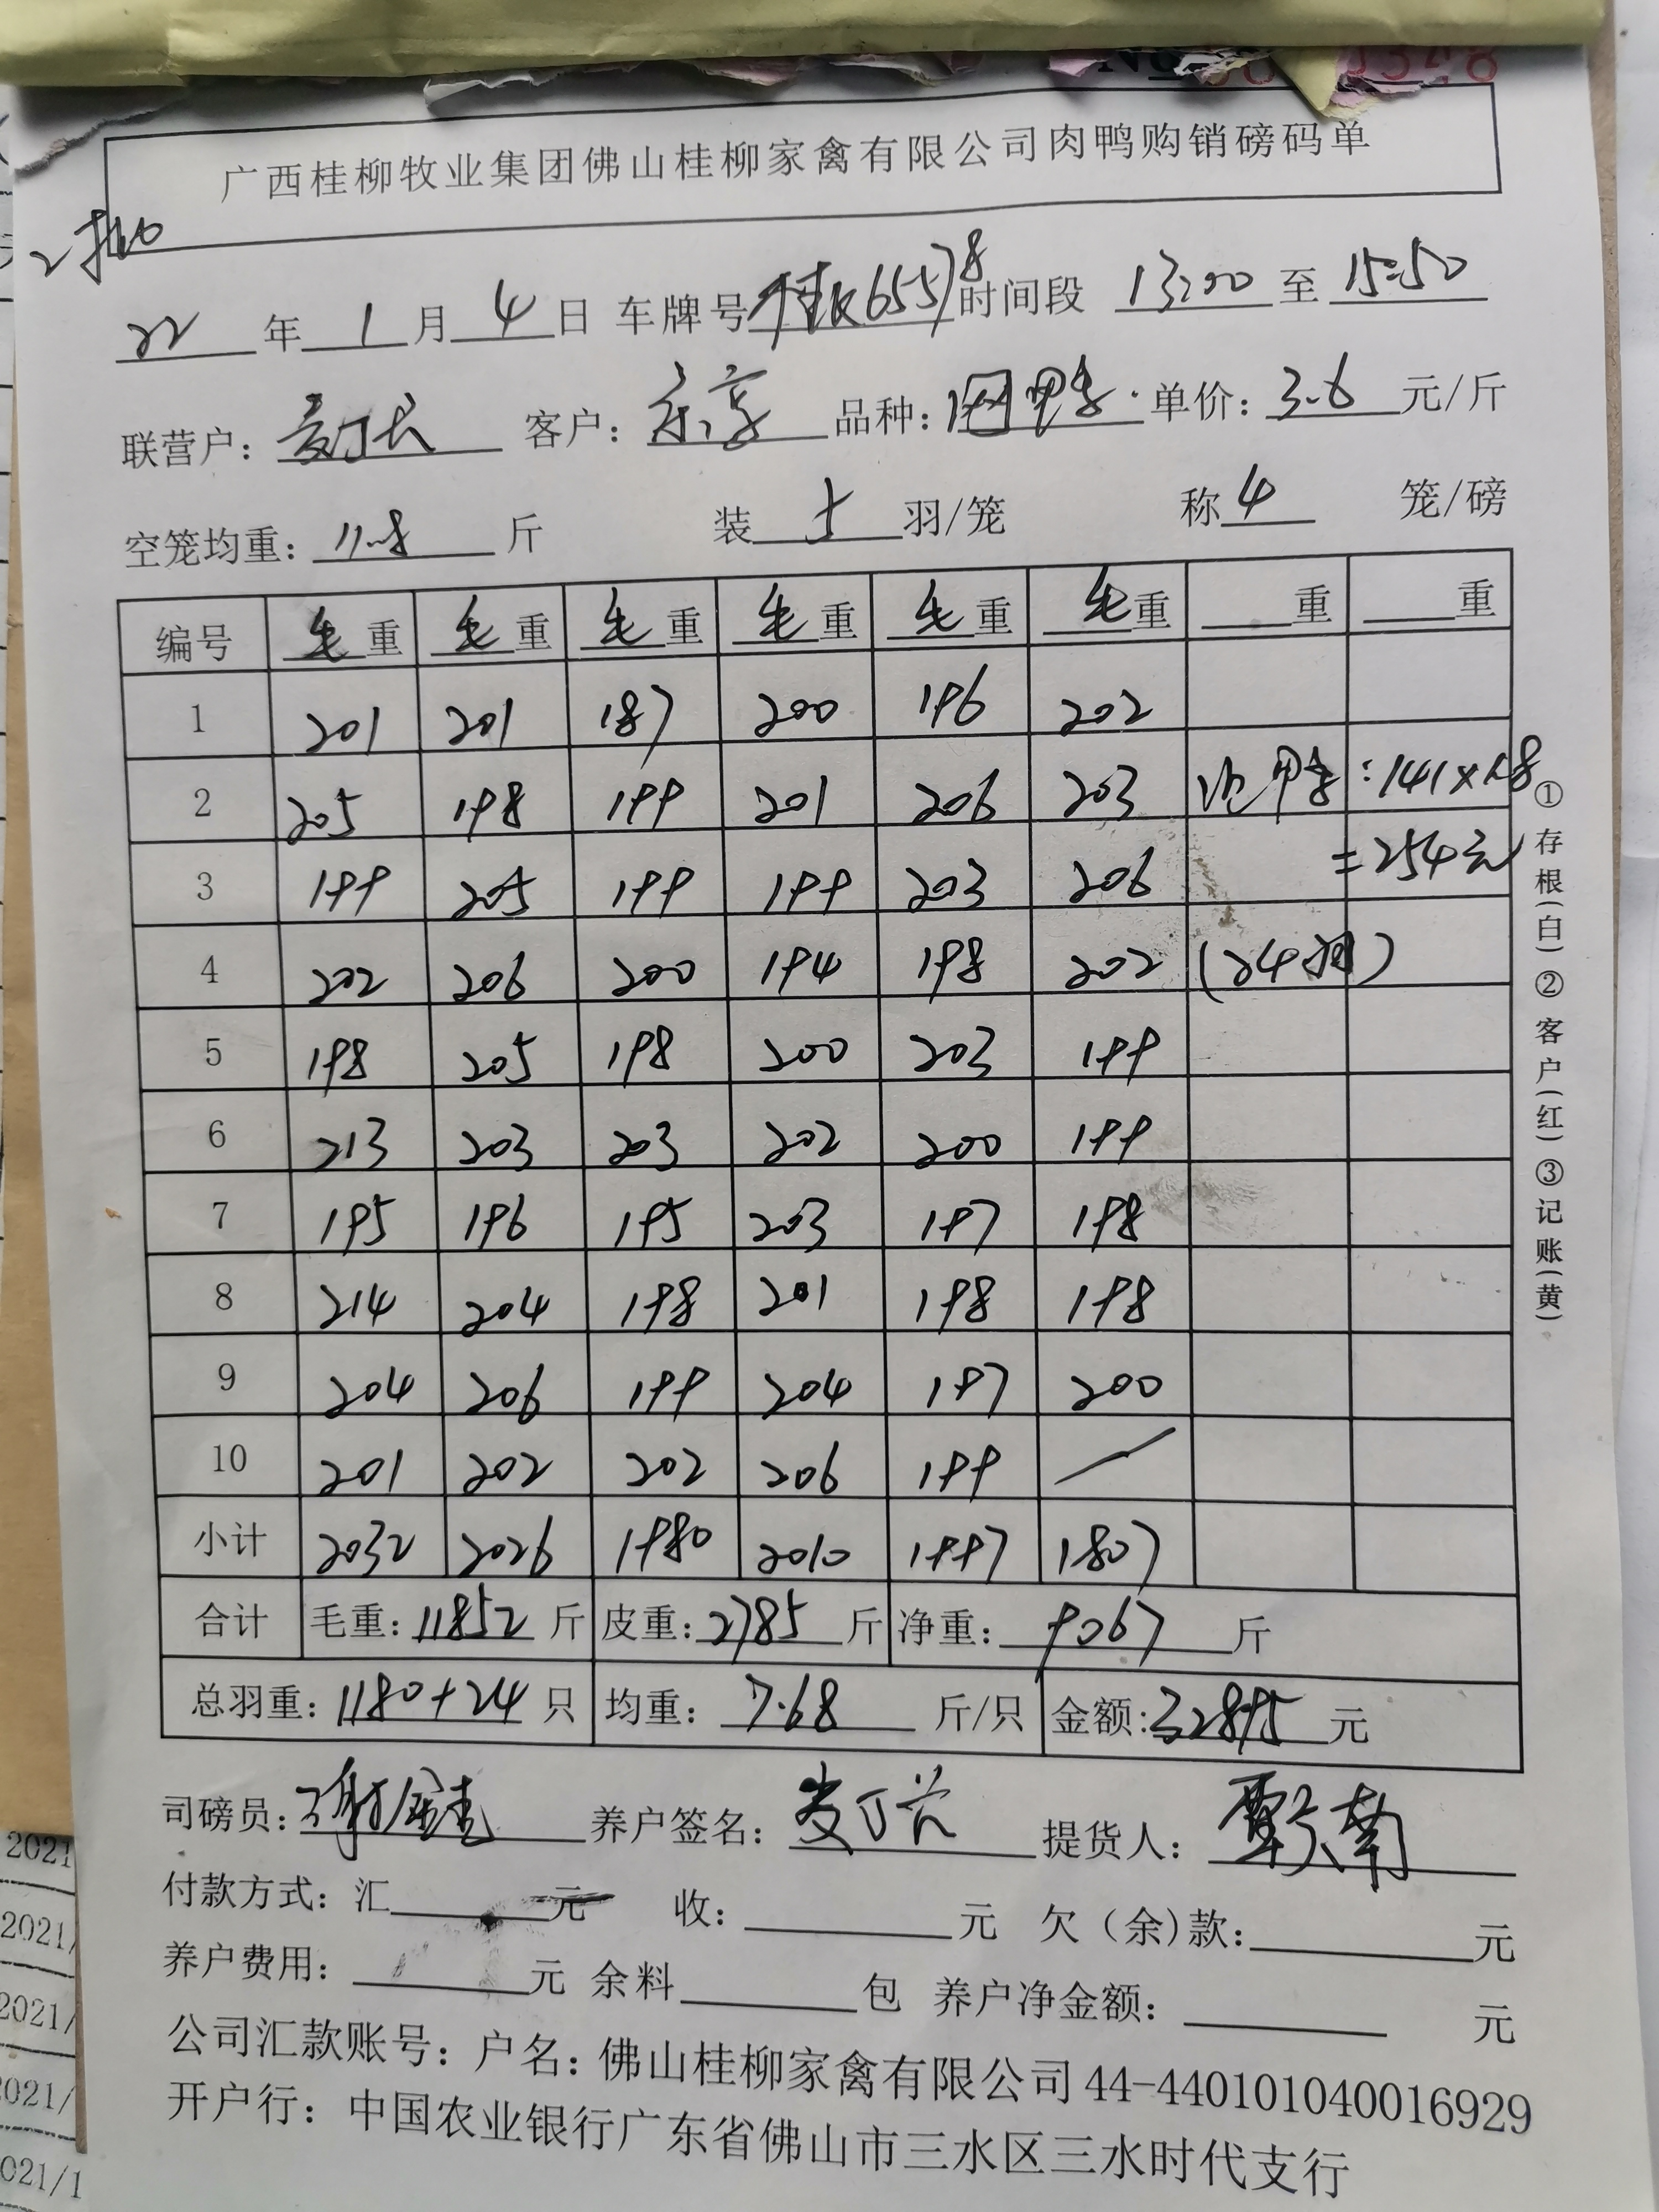 广西桂柳牧业集团佛山桂柳家禽有限公司肉鸭购销磅码单
2批
22年1月4日 车牌号桂K65578时间段 13:00至15:50
联营户: 客户: 品种: 网鸭 单价: 3.6 元/斤
空笼均重: 11.8 斤 装 5 羽/笼 称4 笼/磅
编号 毛重 毛重 毛重 毛重 毛重 毛重 重 重
1 201 201 187 200 196 202
2 205 198 199 201 206 203 鸭: 141×1.8
3 199 205 199 199 203 206 =254元
4 202 206 200 194 198 202 (24羽)
5 198 205 198 200 203 199
6 213 203 203 202 200 199
7 195 196 195 203 197 198
8 214 204 198 201 198 198
9 204 206 199 204 197 200
10 201 202 202 206 199 —
小计 2032 2026 1980 2010 1997 1807
合计 毛重: 11852 斤 皮重: 2785 斤 净重: 9067 斤
总羽重: 1180+24 只 均重: 7.68 斤/只 金额: 32895 元
司磅员: 养户签名: 提货人: 覃天南
付款方式: 汇 元 收: 元 欠(余)款: 元
养户费用: 元 余料 包 养户净金额: 元
公司汇款账号: 户名: 佛山桂柳家禽有限公司 44-440101040016929
开户行: 中国农业银行广东省佛山市三水区三水时代支行
①存根(白)②客户(红)③记账(黄)
2021
2021/
2021/
2021/
021/1